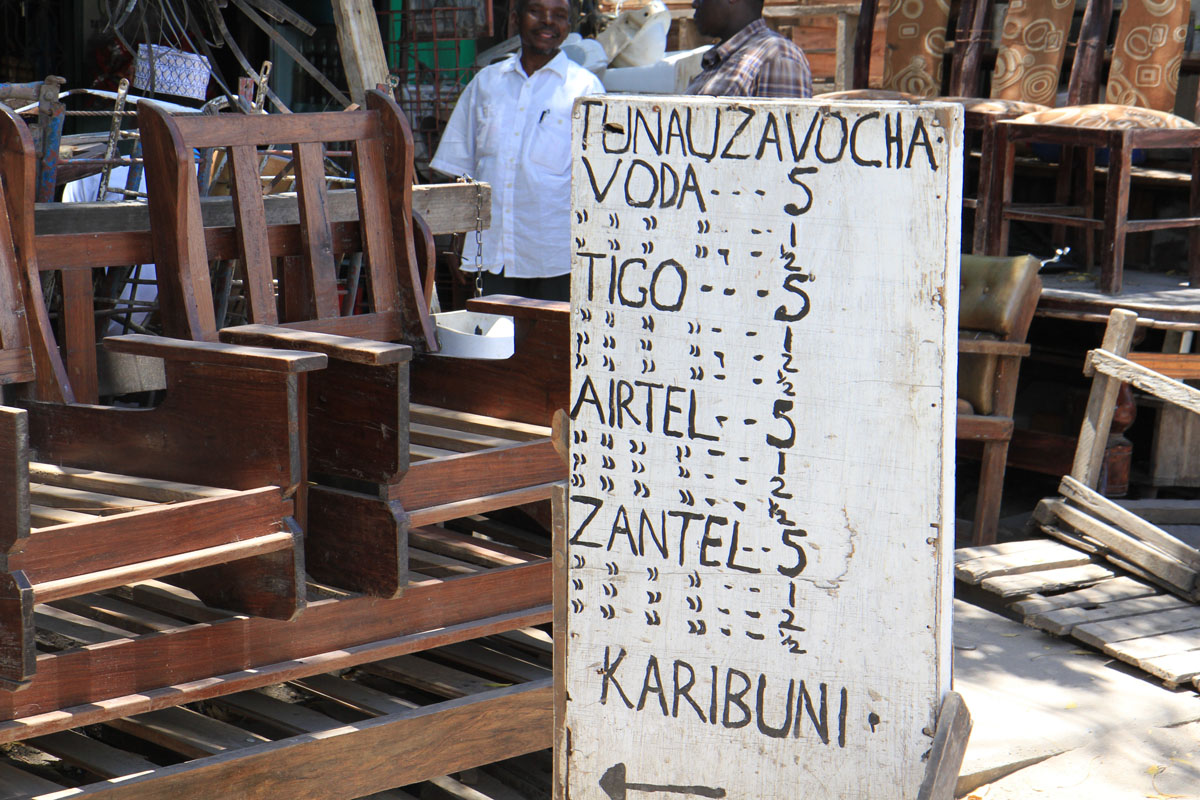 TUNAUZAVOCHA.
VODA --- 5
〃 〃 〃 - - 1
TIGO --- 5
〃 〃 〃 - - 1
〃 〃 〃 - - ½
AIRTEL -- 5
〃 〃 〃 〃 - - 1
〃 〃 〃 〃 - - ½
ZANTEL -- 5
〃 〃 〃 〃 - - 1
〃 〃 〃 〃 - - ½
KARIBUNI.